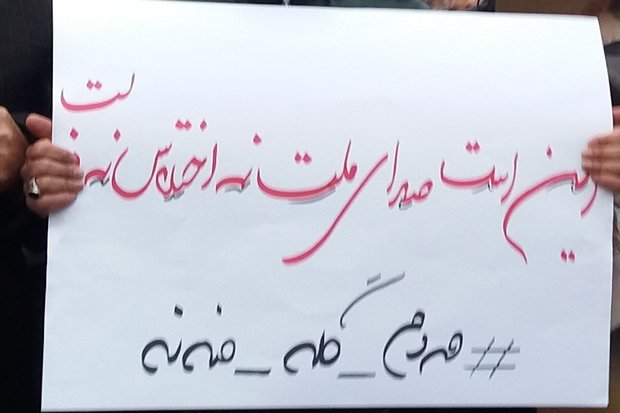 این است صدای ملت نه اختلاس نه
#مردم_گله_مندند